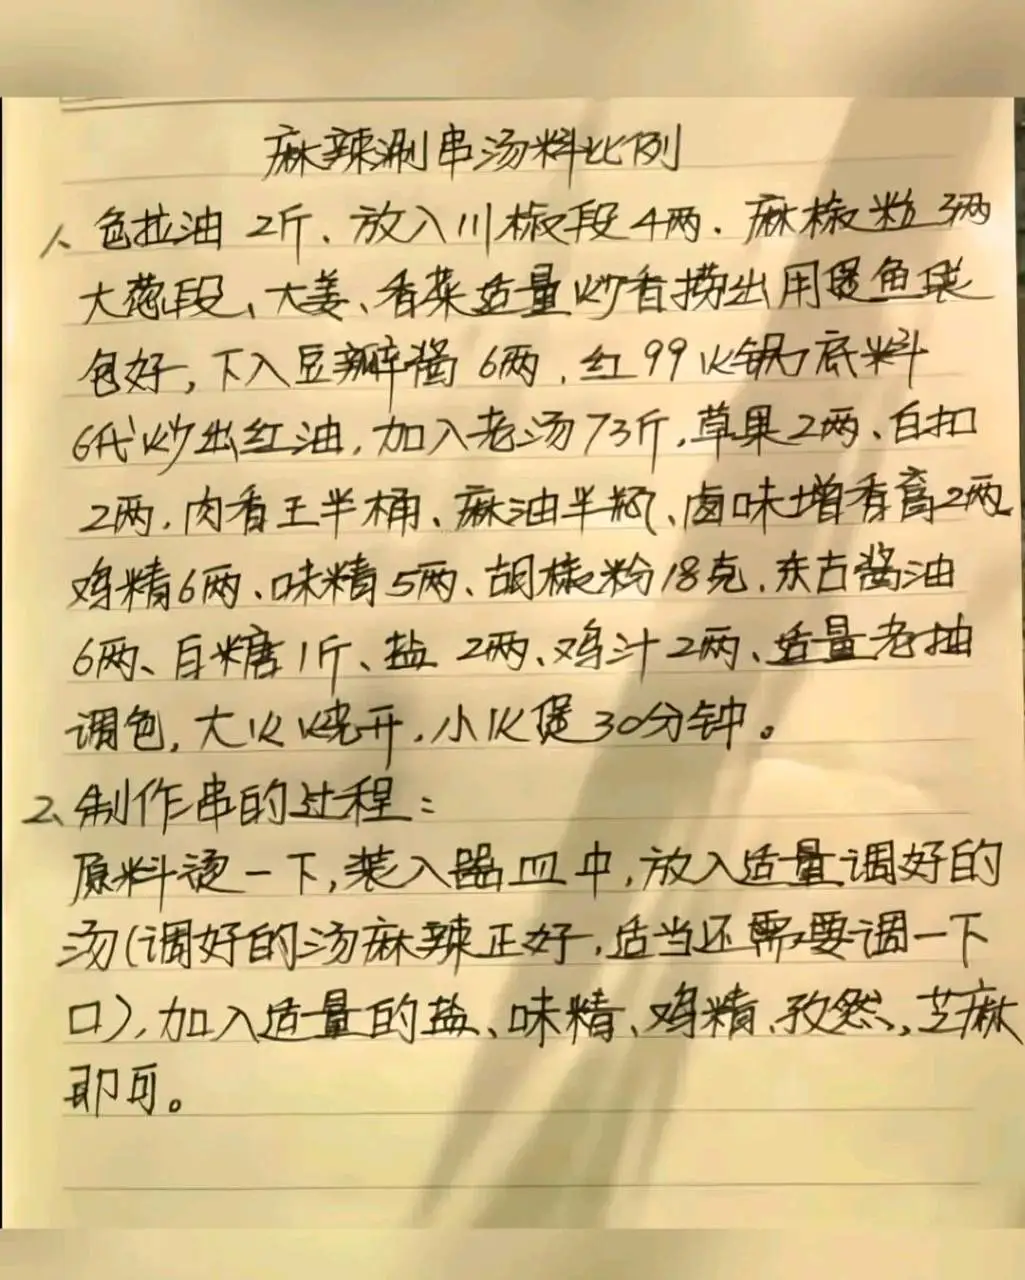 麻辣涮串汤料比例
1、色拉油 2斤、放入川椒段4两、麻椒粒3两
大葱段、大姜、香菜适量炒香捞出用煲鱼袋
包好,下入豆瓣酱 6两、红99火锅底料
6代炒出红油,加入老汤73斤,草果2两、白扣
2两,肉香王半桶、麻油半瓶、卤味增香膏2两
鸡精6两、味精5两、胡椒粉18克、东古酱油
6两、白糖1斤、盐 2两、鸡汁2两、适量老抽
调色,大火烧开,小火煲30分钟。
2、制作串的过程:
原料烫一下,装入器皿中,放入适量调好的
汤(调好的汤麻辣正好,适当还需要调一下
口),加入适量的盐、味精、鸡精、孜然,芝麻
即可。